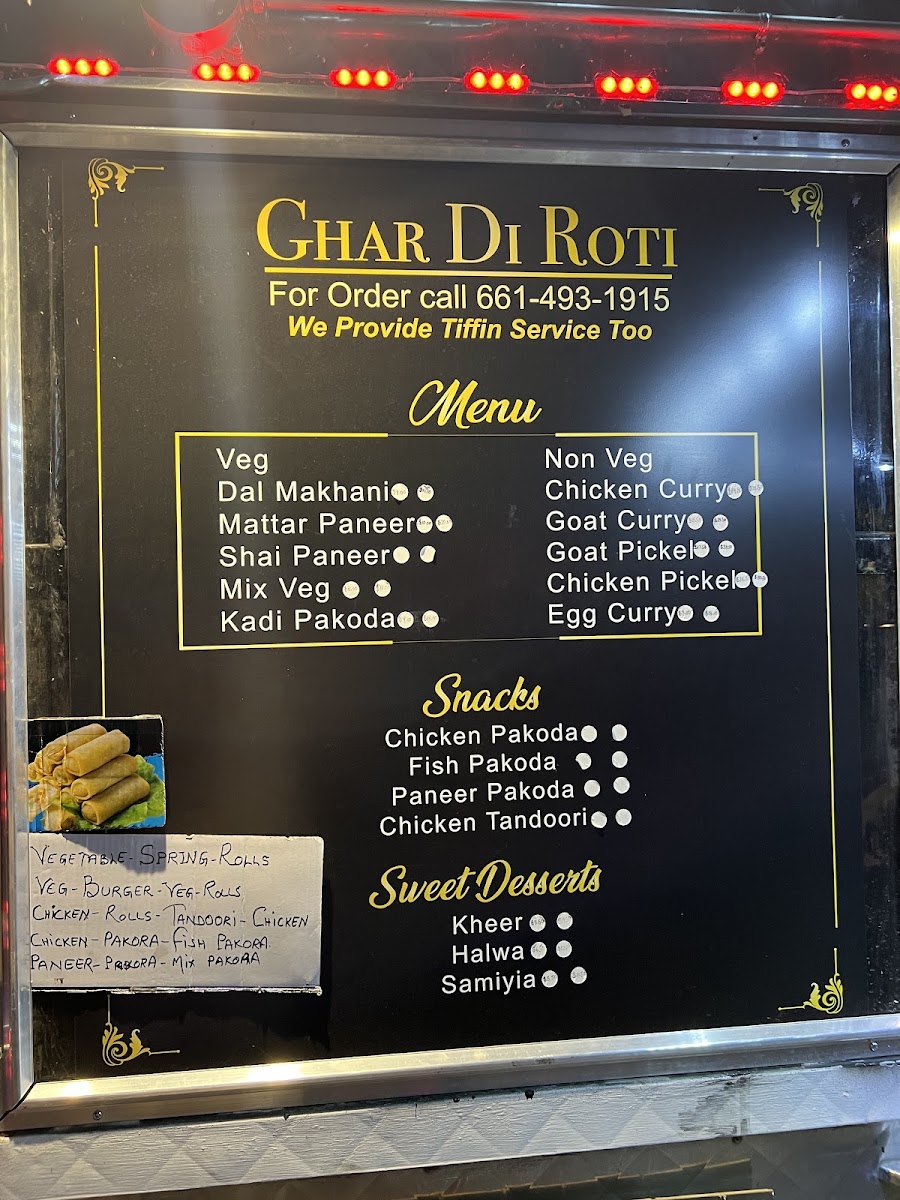 GHAR DI ROTI
For Order call 661-493-1915
We Provide Tiffin Service Too
Menu
Veg
Dal Makhani
Mattar Paneer
Shai Paneer
Mix Veg
Kadi Pakoda
Non Veg
Chicken Curry
Goat Curry
Goat Pickel
Chicken Pickel
Egg Curry
Snacks
Chicken Pakoda
Fish Pakoda
Paneer Pakoda
Chicken Tandoori
VEGETABLE-SPRING-ROLLS
VEG-BURGER-VEG-ROLLS
CHICKEN-ROLLS-TANDOORI-CHICKEN
CHICKEN-PAKORA-FISH PAKORA
PANEER-PAKORA-MIX PAKORA
Sweet Desserts
Kheer
Halwa
Samiyia